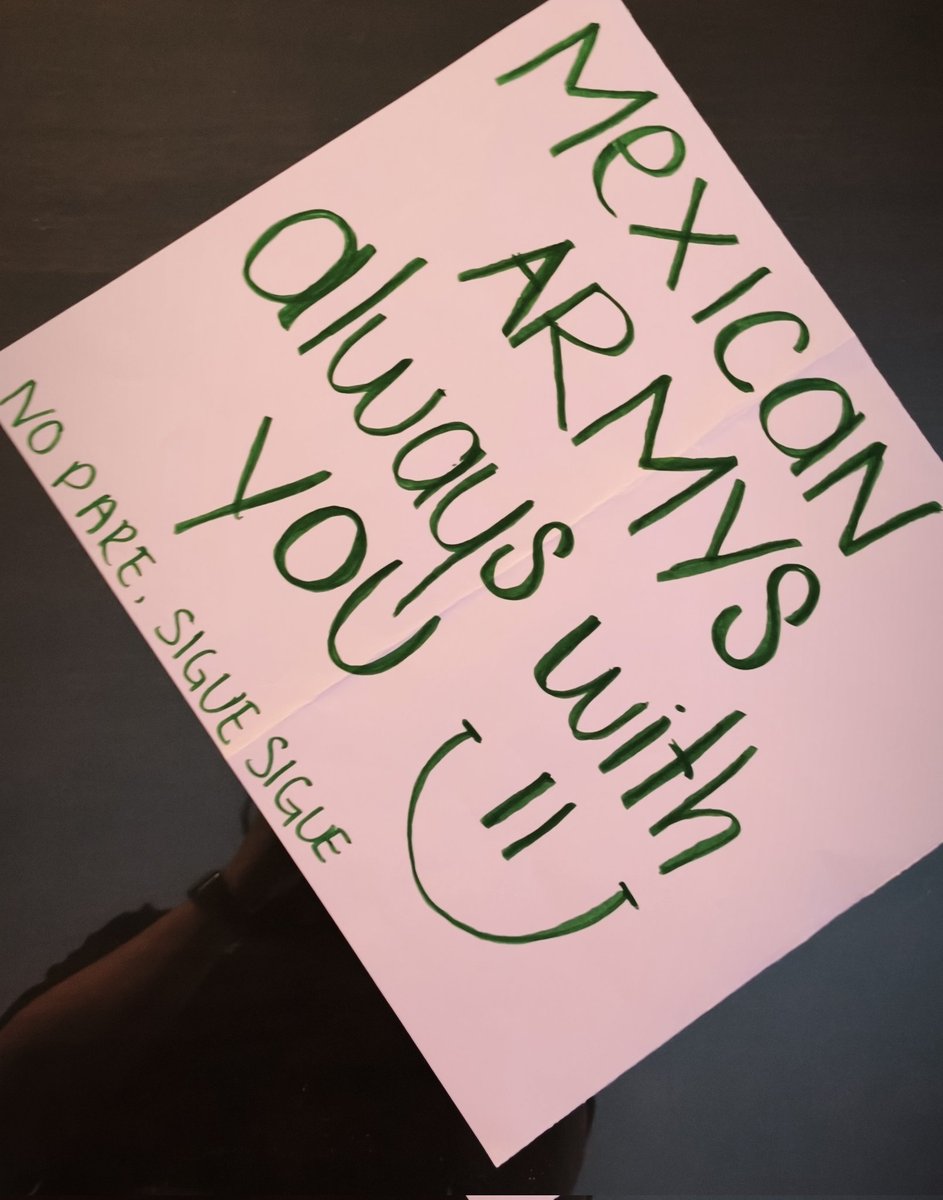 Mexican
ARMYS
always with
you
NO PARE, SIGUE SIGUE